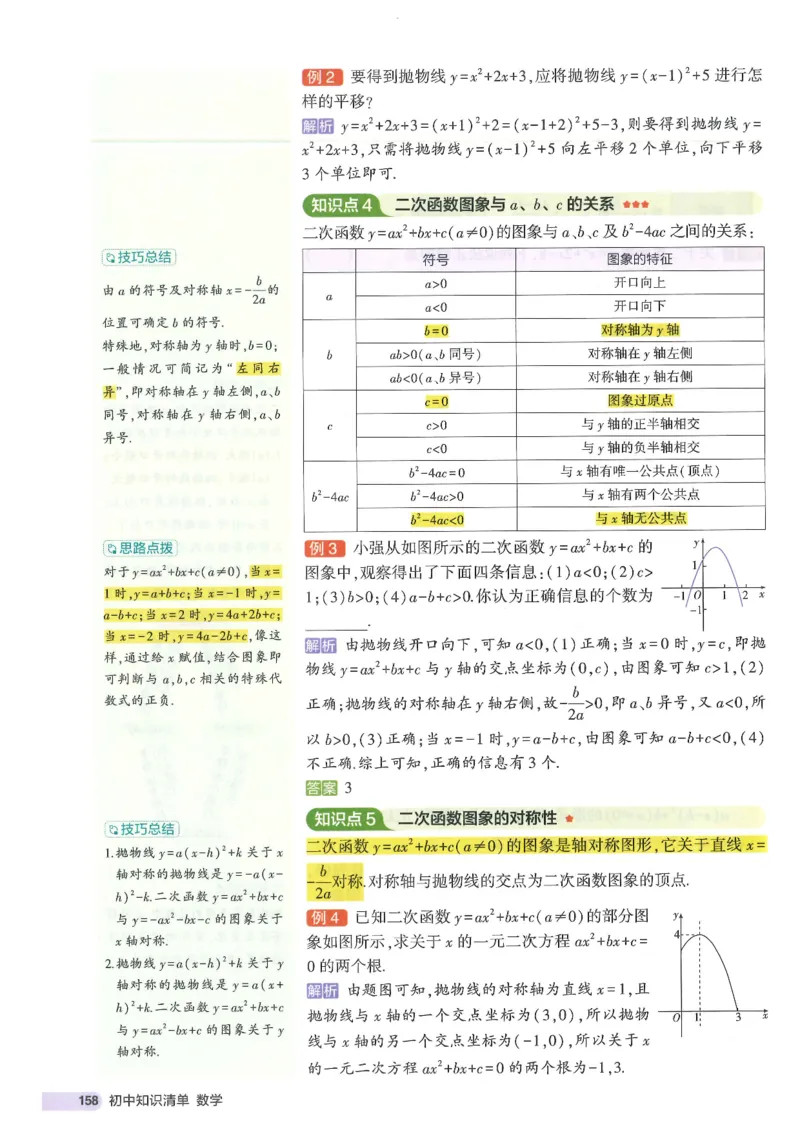 例2 要得到抛物线 y=x²+2x+3,应将抛物线 y=(x-1)²+5 进行怎
样的平移?
解析 y=x²+2x+3=(x+1)²+2=(x-1+2)²+5-3,则要得到抛物线 y=
x²+2x+3,只需将抛物线 y=(x-1)²+5 向左平移 2 个单位,向下平移
3 个单位即可.
知识点4 二次函数图象与 a、b、c 的关系 ★★★
二次函数 y=ax²+bx+c(a≠0)的图象与 a、b、c 及 b²-4ac 之间的关系:
符号 图象的特征
a a>0 开口向上
a<0 开口向下
b b=0 对称轴为 y 轴
ab>0(a、b 同号) 对称轴在 y 轴左侧
ab<0(a、b 异号) 对称轴在 y 轴右侧
c c=0 图象过原点
c>0 与 y 轴的正半轴相交
c<0 与 y 轴的负半轴相交
b²-4ac b²-4ac=0 与 x 轴有唯一公共点(顶点)
b²-4ac>0 与 x 轴有两个公共点
b²-4ac<0 与 x 轴无公共点
技巧总结
由 a 的符号及对称轴 x=-b/2a 的
位置可确定 b 的符号.
特殊地,对称轴为 y 轴时,b=0;
一般情况可简记为“左同右
异”,即对称轴在 y 轴左侧,a、b
同号,对称轴在 y 轴右侧,a、b
异号.
例3 小强从如图所示的二次函数 y=ax²+bx+c 的
图象中,观察得出了下面四条信息:(1)a<0;(2)c>
1;(3)b>0;(4)a-b+c>0.你认为正确信息的个数为
________.
y
1
-1 O 1 2 x
-1
解析 由抛物线开口向下,可知 a<0,(1)正确;当 x=0 时,y=c,即抛
物线 y=ax²+bx+c 与 y 轴的交点坐标为(0,c),由图象可知 c>1,(2)
正确;抛物线的对称轴在 y 轴右侧,故-b/2a>0,即 a、b 异号,又 a<0,所
以 b>0,(3)正确;当 x=-1 时,y=a-b+c,由图象可知 a-b+c<0,(4)
不正确.综上可知,正确的信息有 3 个.
答案 3
思路点拨
对于 y=ax²+bx+c(a≠0),当 x=
1 时,y=a+b+c;当 x=-1 时,y=
a-b+c;当 x=2 时,y=4a+2b+c;
当 x=-2 时,y=4a-2b+c,像这
样,通过给 x 赋值,结合图象即
可判断与 a,b,c 相关的特殊代
数式的正负.
知识点5 二次函数图象的对称性 ★
二次函数 y=ax²+bx+c(a≠0)的图象是轴对称图形,它关于直线 x=
-b/2a 对称.对称轴与抛物线的交点为二次函数图象的顶点.
例4 已知二次函数 y=ax²+bx+c(a≠0)的部分图
象如图所示,求关于 x 的一元二次方程 ax²+bx+c=
0 的两个根.
解析 由题图可知,抛物线的对称轴为直线 x=1,且
抛物线与 x 轴的一个交点坐标为(3,0),所以抛物
线与 x 轴的另一个交点坐标为(-1,0),所以关于 x
的一元二次方程 ax²+bx+c=0 的两个根为-1,3.
y
4
O 1 3 x
技巧总结
1.抛物线 y=a(x-h)²+k 关于 x
轴对称的抛物线是 y=-a(x-
h)²-k.二次函数 y=ax²+bx+c
与 y=-ax²-bx-c 的图象关于
x 轴对称.
2.抛物线 y=a(x-h)²+k 关于 y
轴对称的抛物线是 y=a(x+
h)²+k.二次函数 y=ax²+bx+c
与 y=ax²-bx+c 的图象关于 y
轴对称.
158 初中知识清单 数学